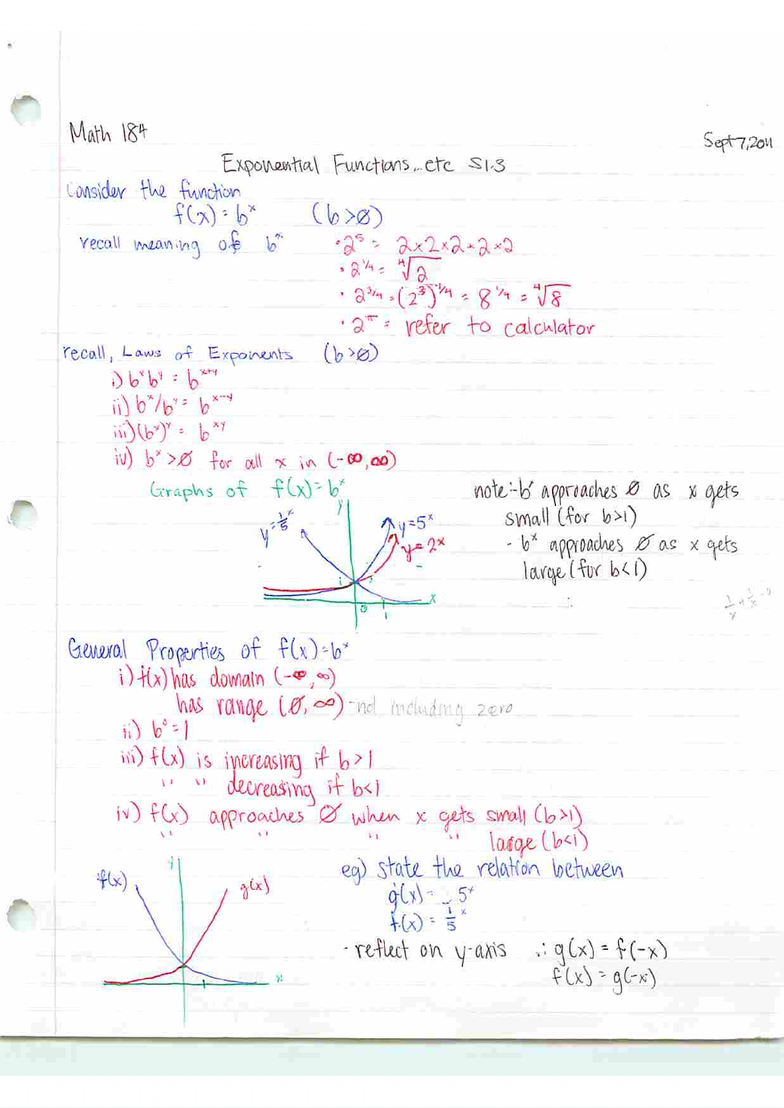 Math 184
Sept 7, 2011
Exponential Functions...etc S1.3
Consider the function
f(x) = bˣ (b>Ø)
recall meaning of bˣ
· 2⁵ = 2×2×2×2×2
· 2^(1/4) = ⁴√2
· 2^(3/4) = (2³)^(1/4) = 8^(1/4) = ⁴√8
· 2^π = refer to calculator
recall, Laws of Exponents (b>Ø)
i) bˣbʸ = bˣ⁺ʸ
ii) bˣ/bʸ = bˣ⁻ʸ
iii) (bˣ)ʸ = bˣʸ
iv) bˣ >Ø for all x in (-∞,∞)
Graphs of f(x)=bˣ
y
y=1/5ˣ
y=5ˣ
y=2ˣ
1
0
1
x
note:- bˣ approaches Ø as x gets
small (for b>1)
- bˣ approaches Ø as x gets
large (for b<1)
General Properties of f(x)=bˣ
i) f(x) has domain (-∞,∞)
has range (Ø,∞) - not including zero
ii) b⁰=1
iii) f(x) is increasing if b>1
" " decreasing if b<1
iv) f(x) approaches Ø when x gets small (b>1)
" " " " large (b<1)
y
f(x)
g(x)
x
eg) state the relation between
g(x) = 5ˣ
f(x) = 1/5ˣ
- reflect on y-axis ∴ g(x) = f(-x)
f(x) = g(-x)